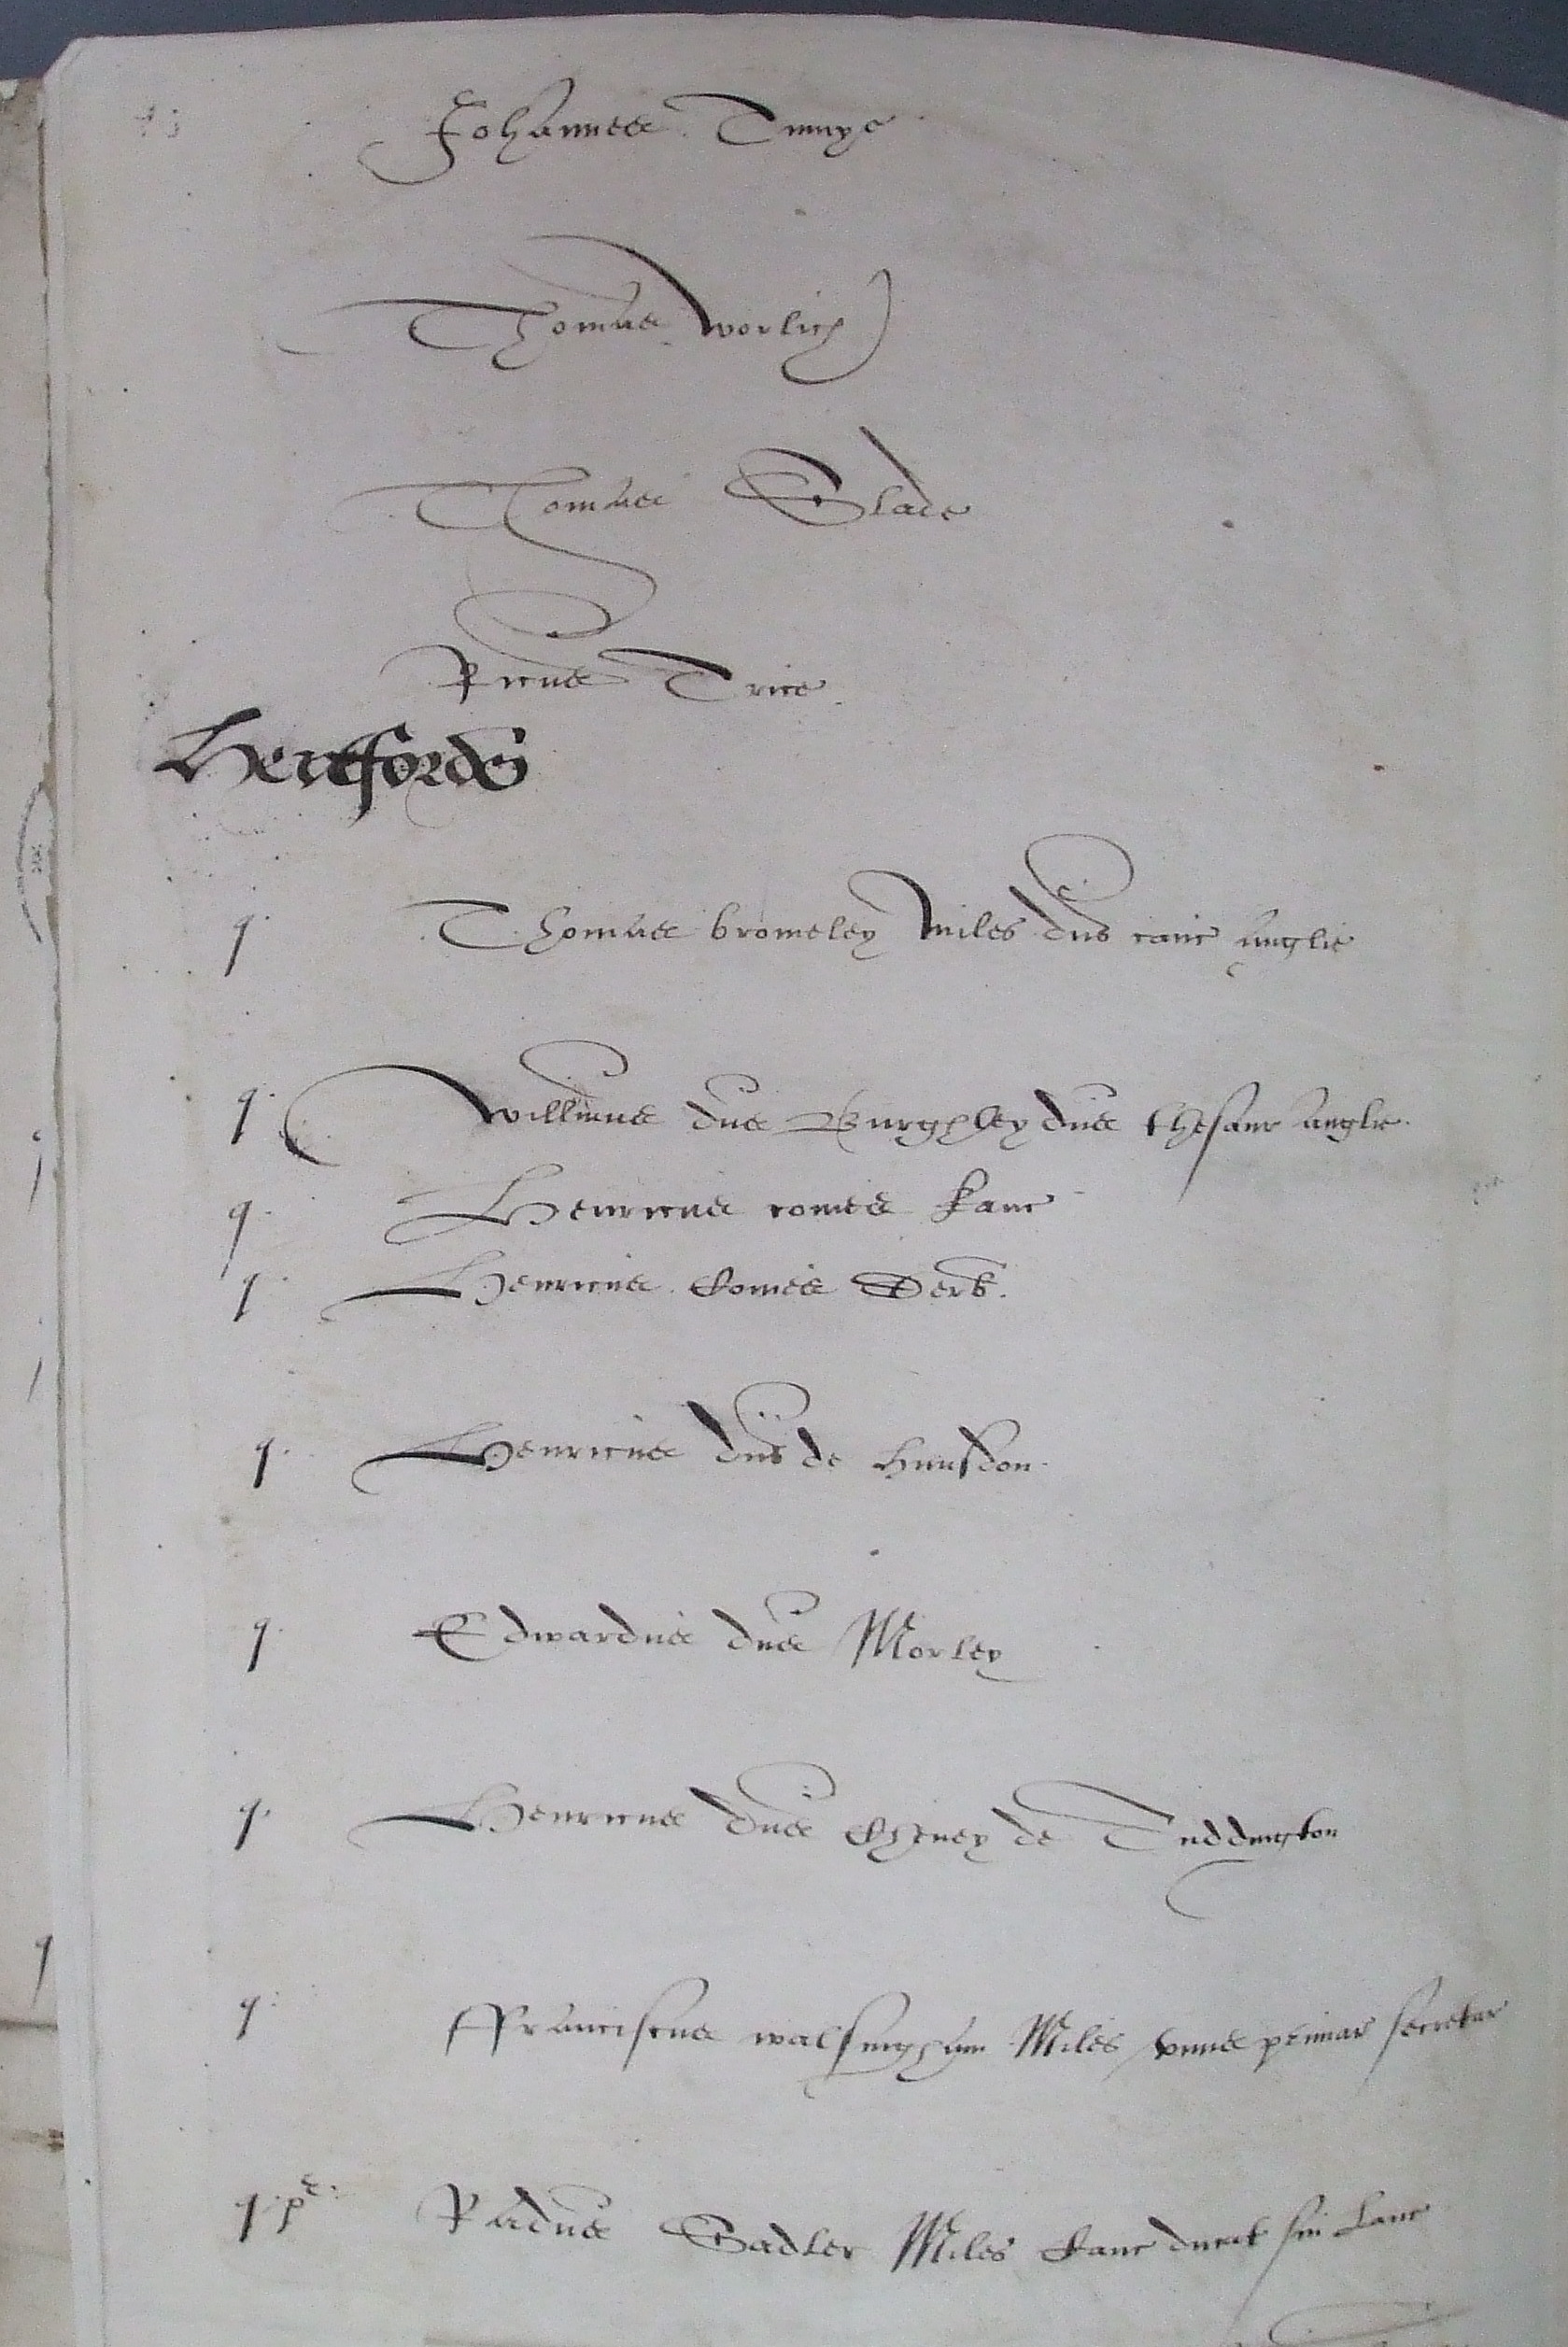 Johannes Tmyo
Thomas worlich
Thomas Slade
Ricus Trice
Hertford
q Thomas bromeley Miles dns canc Anglie
q Willmus dns Burghley dns thesaur Anglie
q Henricus comes Kanc
q Henricus Comes Derb.
q Henricus dns de hunsdon
q Edwardus dns Morley
q Henricus dns Cheney de Tuddington
q ffranciscus walsingham Miles vnus primar secretar
q Radus Sadler Miles Canc ducat sui Lanc